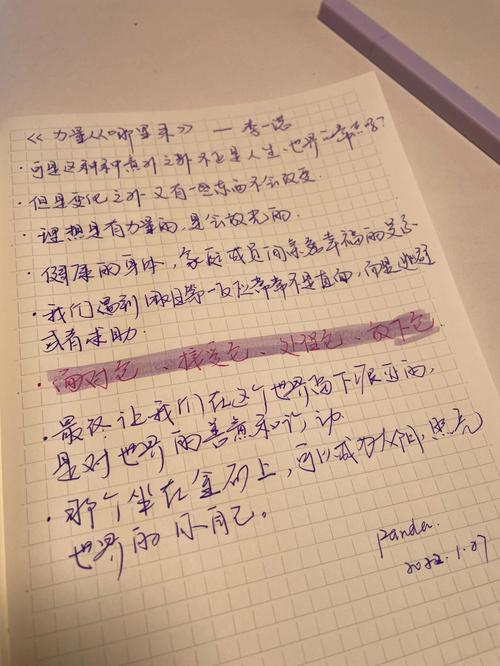 《力量从哪里来》 — 李一诺
· 可是这种种意外之外 不正是人生、世界一部分
· 但是变化之外 又有一些东西不会改变.
· 理想是有力量的, 是会放光的.
· 健康的身体, 家庭成员间亲密幸福的关系
· 我们遇到 第一反应常常不是直面, 而是逃避
或者求助.
· 面对它、接受它、处理它、放下它
· 最终让我们在这个世界留下 的,
是对世界的善意和
· 那个坐在金矿上, 可以成为太阳, 照亮
世界的 自己。
panda.
2022.1.27